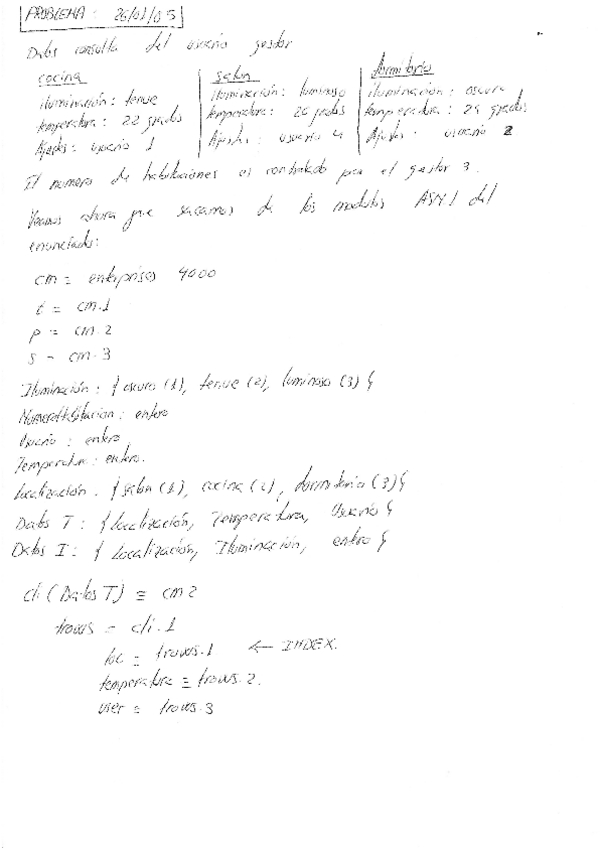 PROBLEMA: 26/01/05
Datos consulta del usuario gestor
cocina
iluminación: tenue
temperatura: 22 grados
Ajustes: usuario 1
salon
iluminación: luminoso
temperatura: 26 grados
Ajustes: usuario 4
dormitorio
iluminación: oscuro
temperatura: 24 grados
Ajustes: usuario 2
El numero de habitaciones es controlado por el gestor 3.
Veamos ahora que sacamos de los modulos ASN1 del
enunciado:
cm = enterprises 4000
t = cm.1
p = cm.2
s = cm.3
Iluminación: { oscuro (1), tenue (2), luminoso (3) }
NumeroHabitacion: entero
Usuario: entero
Temperatura: entero.
Localización: { salon (1), cocina (2), dormitorio (3) }
Datos T: { Localización, Temperatura, Usuario }
Datos I: { Localización, Iluminación, entero }
cli (Datos T) ≡ cm2
trows = cli.1
loc = trows.1 ← INDEX.
temperatura ≡ trows.2.
user = trows.3